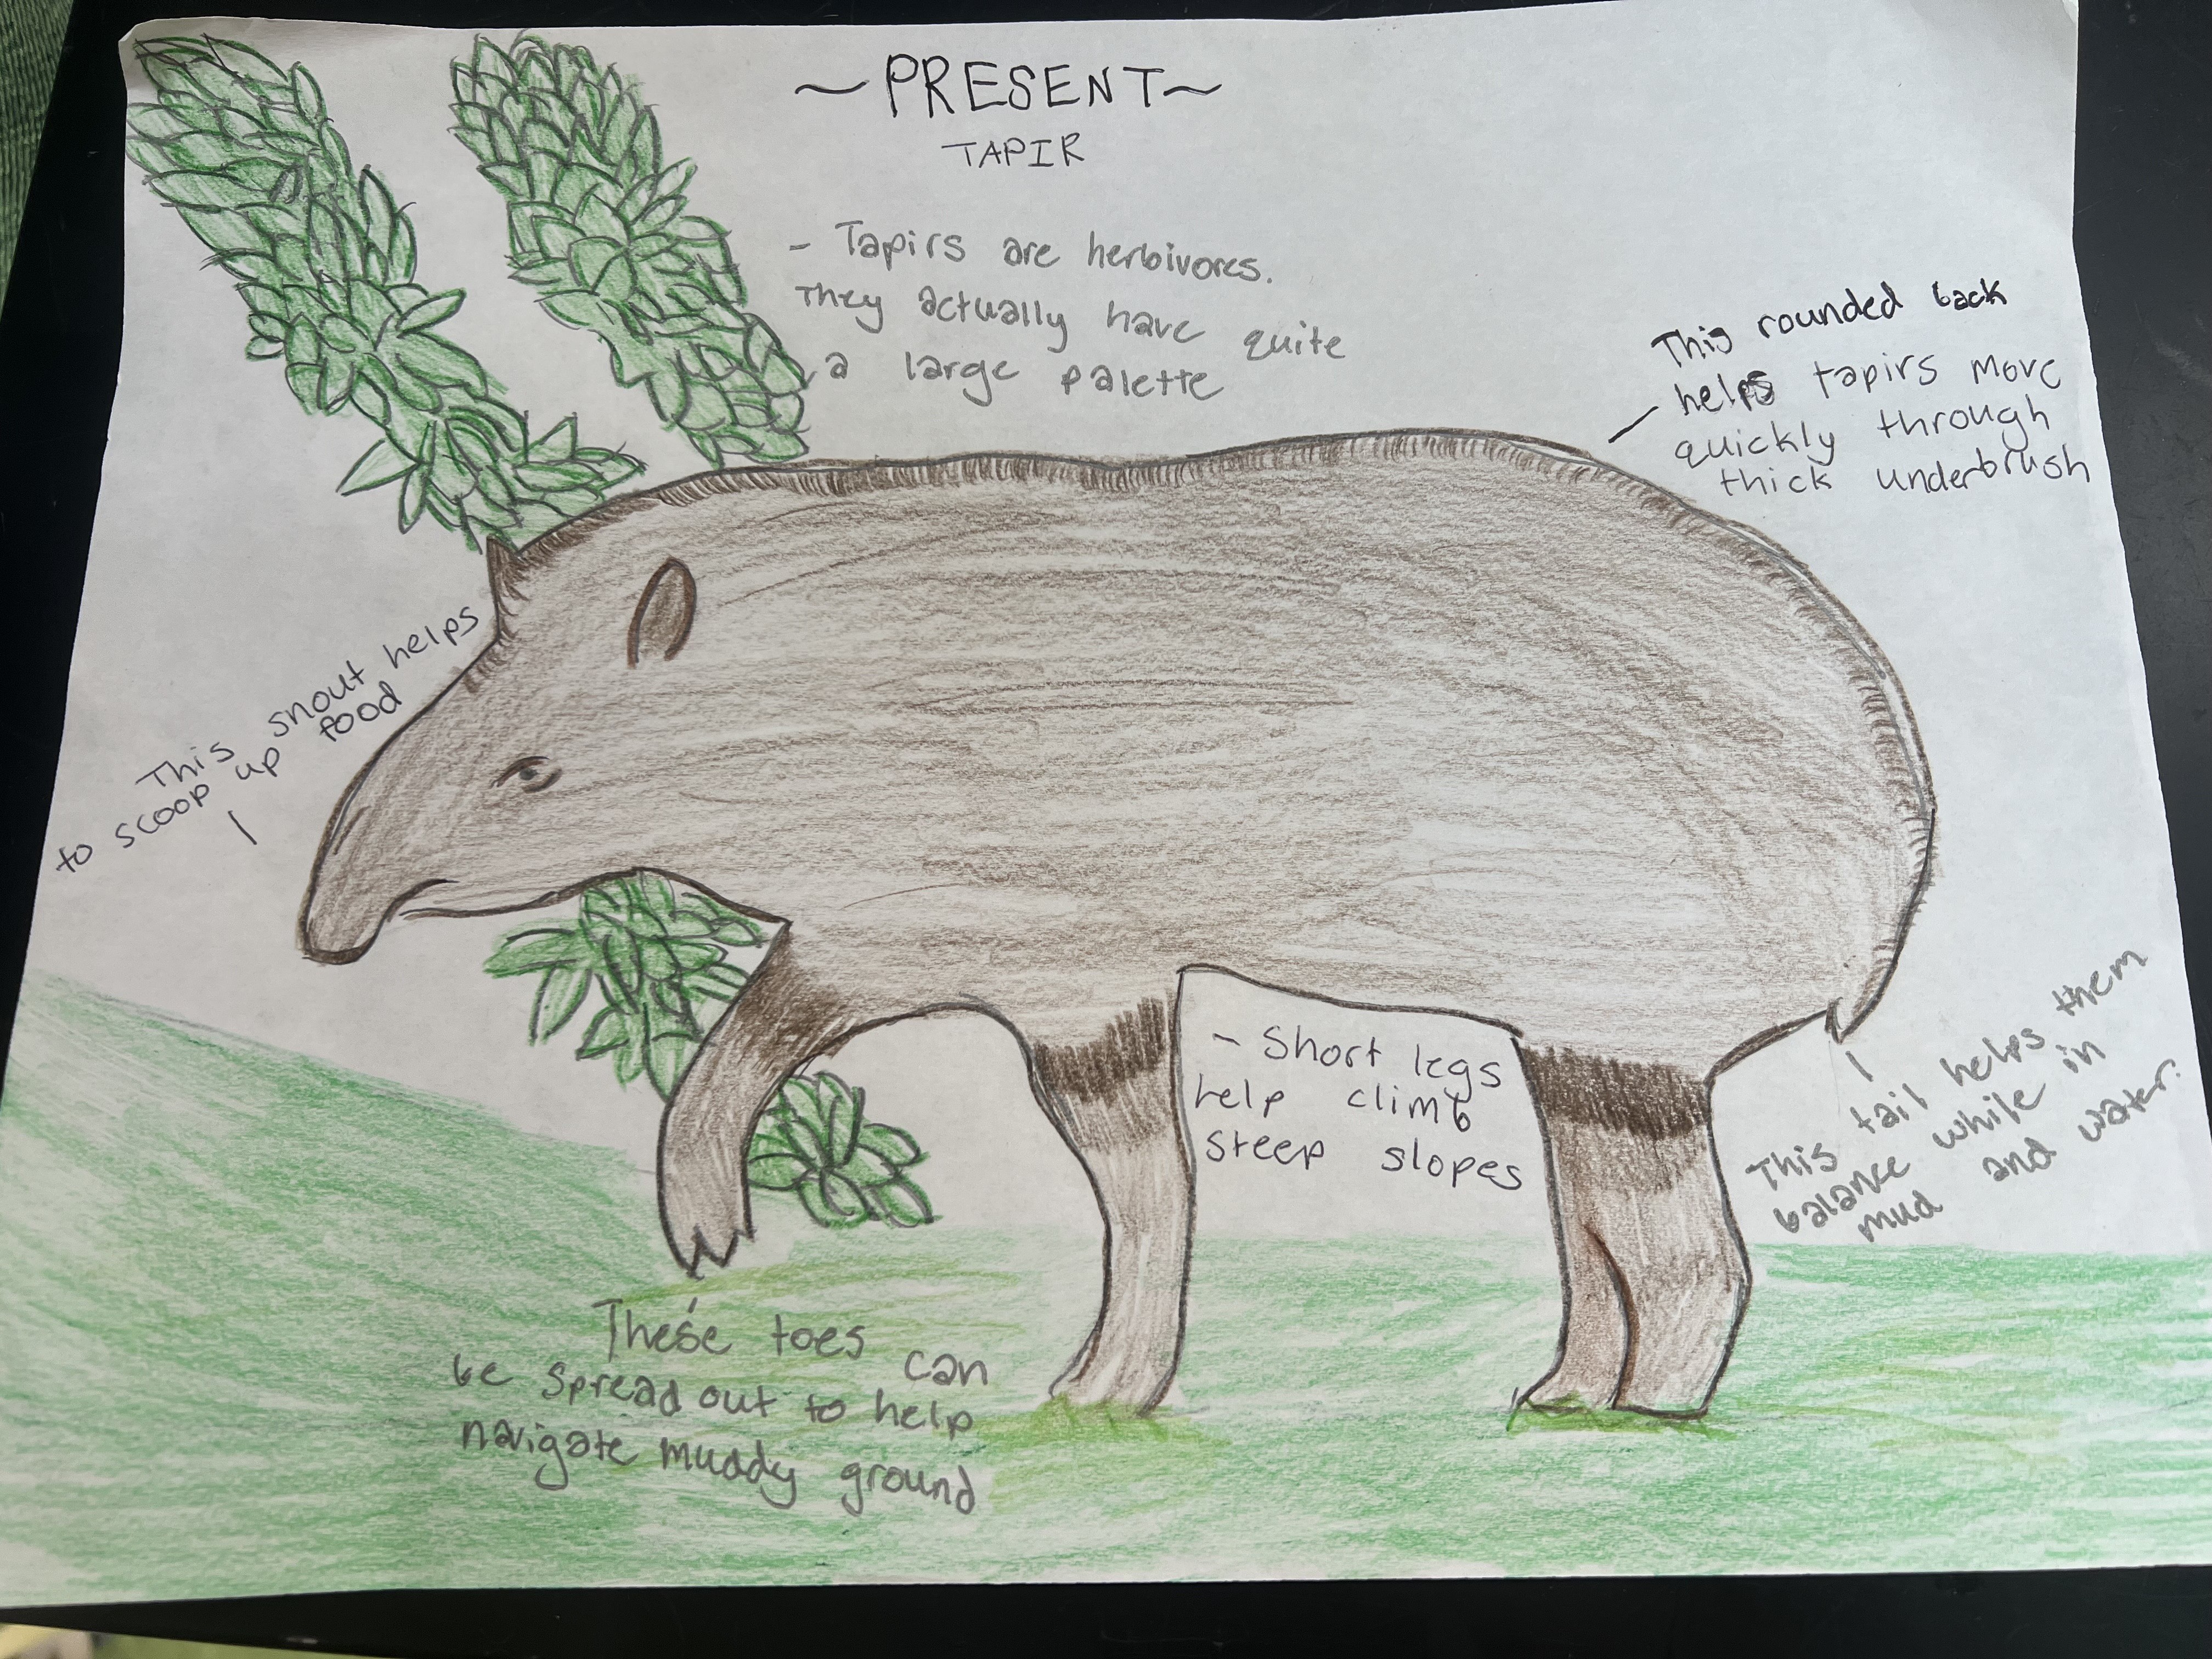 ~PRESENT~
TAPIR
- Tapirs are herbivores.
They actually have quite
a large palette
This rounded back
helps tapirs move
quickly through
thick underbrush
This snout helps
to scoop up food
- Short legs
help climb
steep slopes
This tail helps them
balance while in
mud and water.
These toes can
be spread out to help
navigate muddy ground